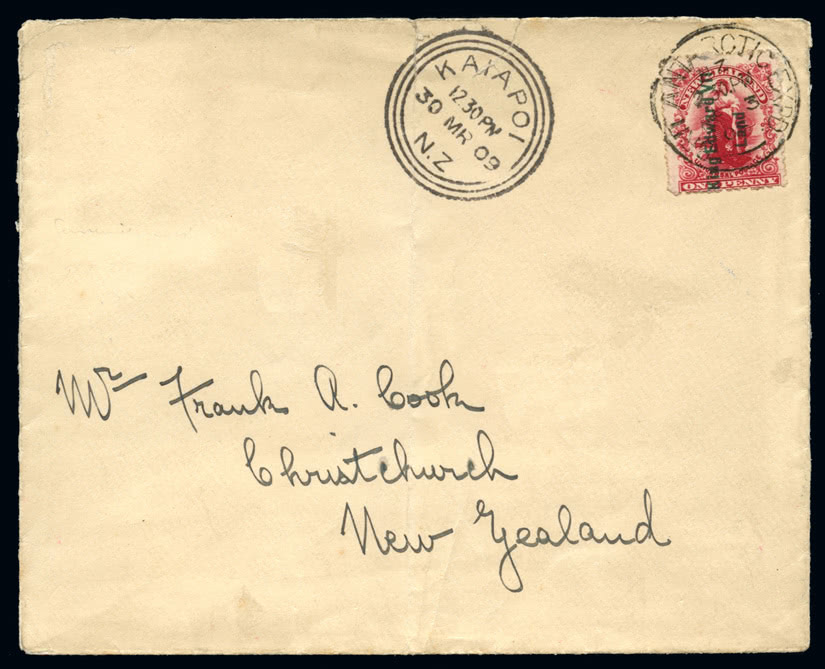 KAIAPOI
12.30 PM
30 MR 09
N.Z
ANTARCTIC EXP
King Edward VII
Land
ONE PENNY
Mr Frank A. Cook
Christchurch
New Zealand